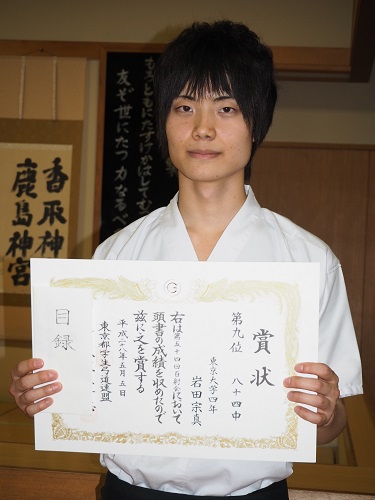 賞状
第九位 八十四中
東京大学四年
岩田宗真
右は第五十四回百射会において
頭書の成績を収めたので
茲に之を賞する
平成二六年五月五日
東京都学生弓道連盟
目録
友ぞ世にたつ力なるべ
香取神
鹿島神宮